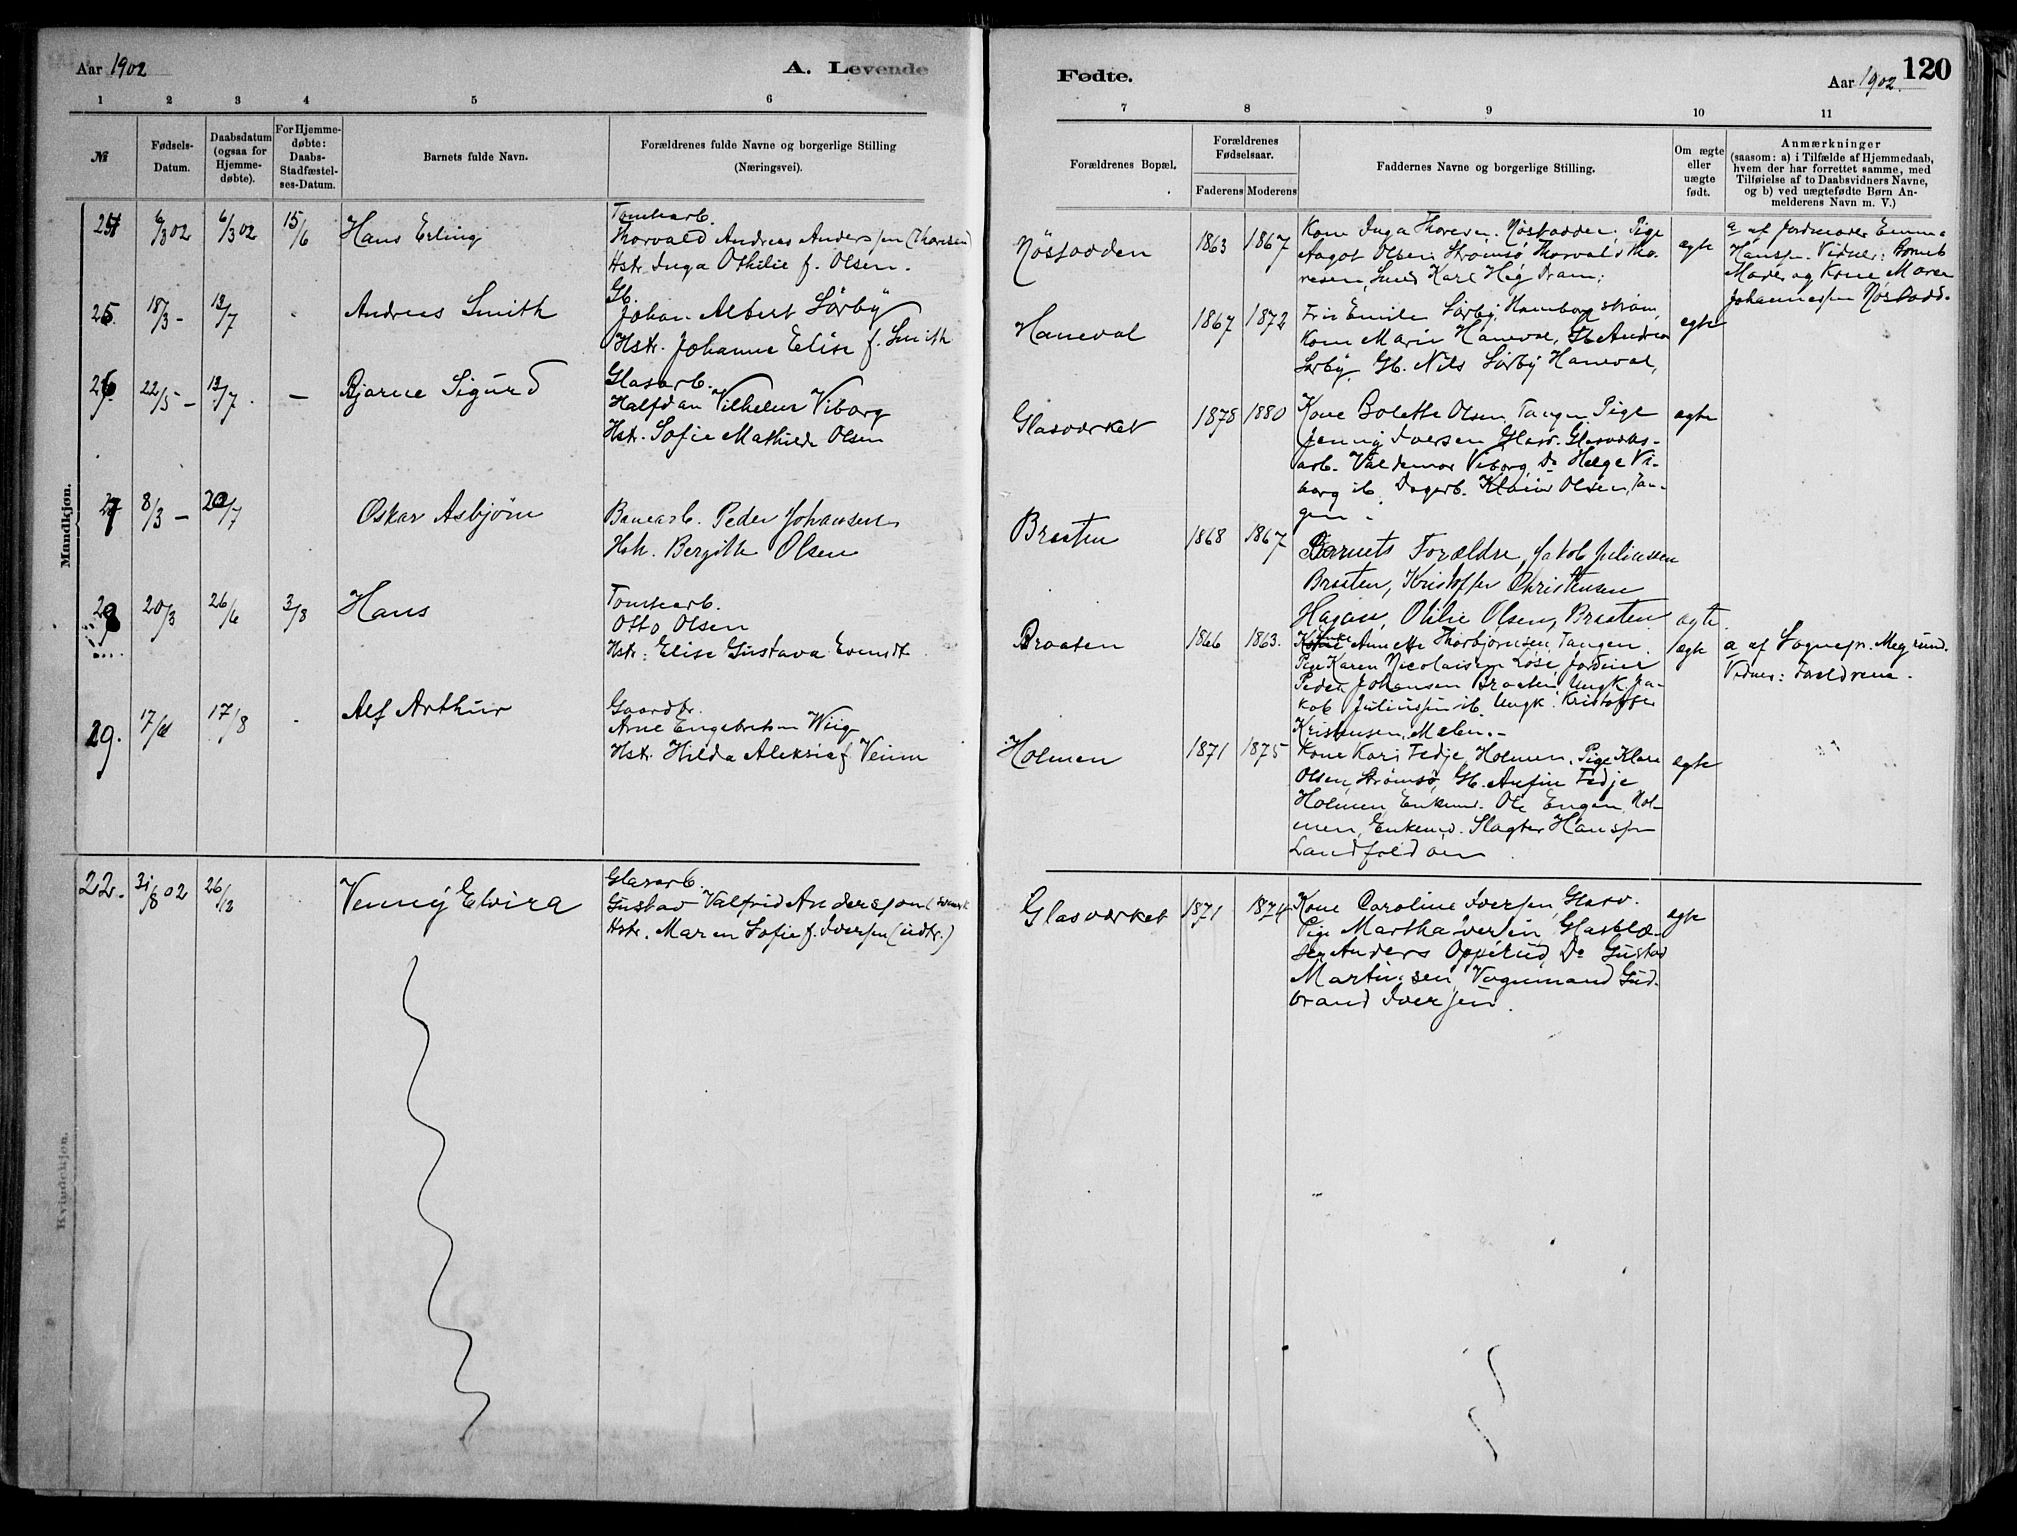 Aar 1902
A. Levende
Fødte.
Aar 1902.
120
1 2 3 4 5 6 7 8 9 10 11
№
Fødsels-
Datum.
Daabsdatum
(ogsaa for
Hjemme-
døbte).
For Hjemme-
døbte:
Daabs-
Stadfæstel-
ses-Datum.
Barnets fulde Navn.
Forældrenes fulde Navne og borgerlige Stilling
(Næringsvei).
Forældrenes Bopæl.
Forældrenes
Fødselsaar.
Faderens
Moderens
Faddernes Navne og borgerlige Stilling.
Om ægte
eller
uægte
født.
Anmærkninger
(saasom: a) i Tilfælde af Hjemmedaab,
hvem der har forrettet samme, med
Tilføielse af to Daabsvidners Navne,
og b) ved uægtefødte Børn An-
melderens Navn m. V.)
Mandkjøn.
6/3 02 6/3 02 15/6 Hans Erling
Tomtearb.
Thorvald Andreas Anderssen (Thoresen)
Hstr. Inga Othilie f. Olsen.
Nøstodden 1863 1867
Kone Inga Thoresen, Nøstodden, Pige
Aagot Olsen Strømsø, Thorvald Tho-
resen, Smed Karl Høg Dram:
ægte
a af Jordmoder Emma
Hanssn. Vidner: Barnets
Moder og Kone Maren
Johannessen Nøstodd.
25. 18/3 - 13/7 - Andreas Smith
Gb.
Johan Albert Sørby
Hstr. Johanne Elise f. Smith
Haneval 1867 1872
Frk Emilie Sørby, Homborg strøm,
Kone Marie Haneval, Gb. Andreas
Sørby, Gb. Nils Sørby Haneval,
ægte
26. 22/5 - 13/7 - Bjarne Sigurd
Glasarb.
Halfdan Vilhelm Viborg
Hst. Sofie Mathilde Olsen
Glasværket 1878 1880
Kone Bolette Olsen, Tangen, Pige
Jenny Iversen Glasv. Glasværks-
arb. Valdemar Viborg, Do Helge Vi-
borg ib. Dagarb. Olsen, Tan-
gen.
ægte
27 8/3 - 20/7 Oskar Asbjørn
Banearb. Peder Johansen
Hstr. Bergitte Olsen
Braaten 1868 1867
Barnets Forældre, Jakob Juliussen
Braaten, Kristoffer Christensen
Hagan, Otilie Olsen, Braaten
ægte.
28 20/3 26/6 3/8 Hans
Tomtearb.
Otto Olsen
Hstr: Elise Gustava Evendt
Braaten 1866 1863.
Kone Annette Thorbjørnsen, Tangen,
Pige Karen Nicolaisen
Peder Johansen Braaten, Ungk. Ja-
kob Juliussen ib. Ungk. Kristoffer
Kristensen, Melen.-
ægte
a af Sognepr. Megrund.
Vidner: Forældrene.
29. 17/8 - Alf Arthur
Gaardbr.
Arne Engebretsen Wiig
Hst. Hilda Aleksia f. Veium
Holmen 1871 1875
Kone Kari Fedje, Holmen, Pige Klara
Olsen, Strømsø, Gb. Anfin Fedje
Holmen, Enkem. Ole Engen, Hol-
men, Enkem. Slagter Hanssen
Landfaldøen
ægte
Kvindekjøn.
22. 31/8 02 26/12 Venny Elvira
Glasarb.
Gustav Valfrid Andersson (svensk
Hstr. Maren Sofie f. Iversen (udtr.)
Glasværket 1871 1874
Kone Caroline Iversen, Glasv.
Pige Martha Iversen, Glasblæ-
ser Anders Oppelud, Do Gustav
Martinsen, Vognmand Gud-
brand Iversen.
ægte